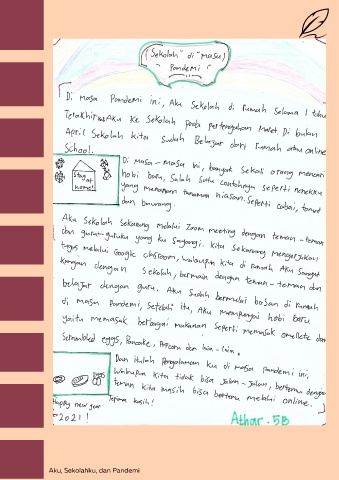 "Sekolah" di "masa"
Pandemi
Di masa Pandemi ini, Aku Sekolah di rumah Selama 1 tahun
Terakhir Aku ke Sekolah pada pertengahan Maret. Di bulan
April Sekolah kita sudah Belajar dari Rumah atau online
School.
Stay at home!
Di Masa-masa ini, banyak sekali orang mencari
hobi baru, Salah satu contohnya seperti nenekku
yang menanam tanaman hiasan. Seperti cabai, tomat
dan bawang.
Aku Sekolah Sekarang melalui Zoom meeting dengan teman-teman
dan guru-guruku yang ku Sayangi. Kita Sekarang mengerjakan
tugas melalui Google classroom, walaupun kita di rumah Aku Sangat
kangen dengan Sekolah, bermain dengan teman-teman dan
belajar dengan guru. Aku Sudah bermulai bosan di rumah
di masa pandemi, Setelah itu, Aku mempunyai hobi baru
yaitu memasak berbagai makanan Seperti memasak omellete dan
Scrambled eggs, Pancake, Popcorn dan lain-lain.
Dan itulah Pengalaman ku di masa pandemi ini,
Walaupun kita tidak bisa jalan-jalan, bertemu dengan
teman kita masih bisa bertemu melalui online.
Happy new year
2021!
Terima kasih!
Athar-5B
Aku, Sekolahku, dan Pandemi